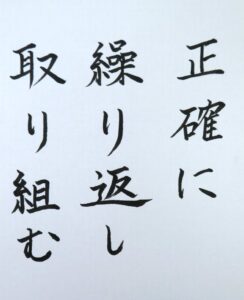 正確に
繰り返し
取り組む